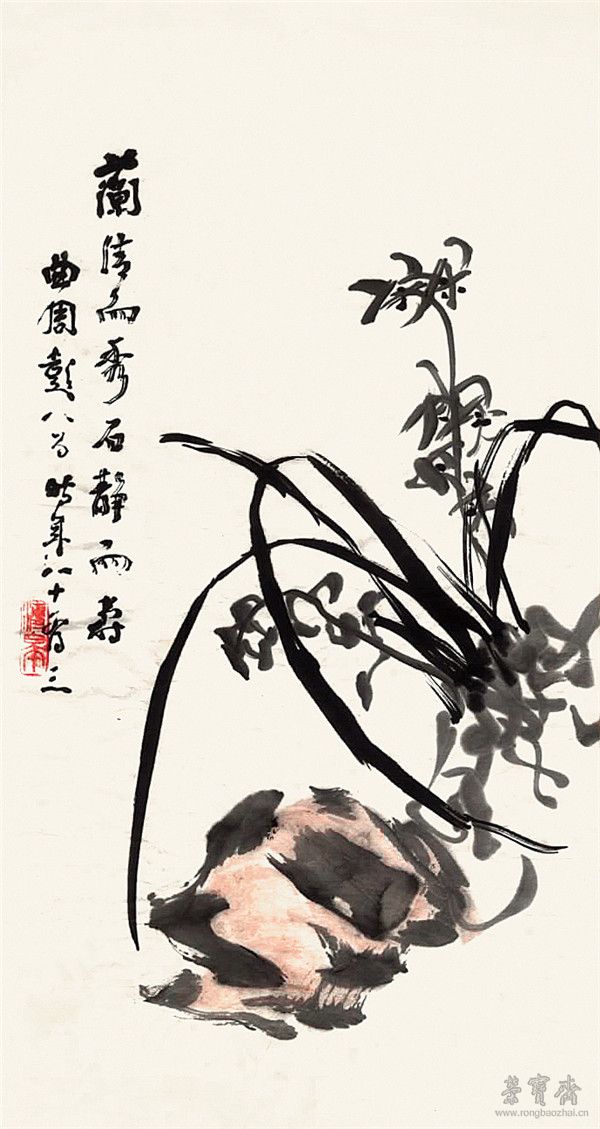 蘭清而秀石靜而壽
曲周彭八百時年八十有三
榮寶齋
www.rongbaozhai.cn